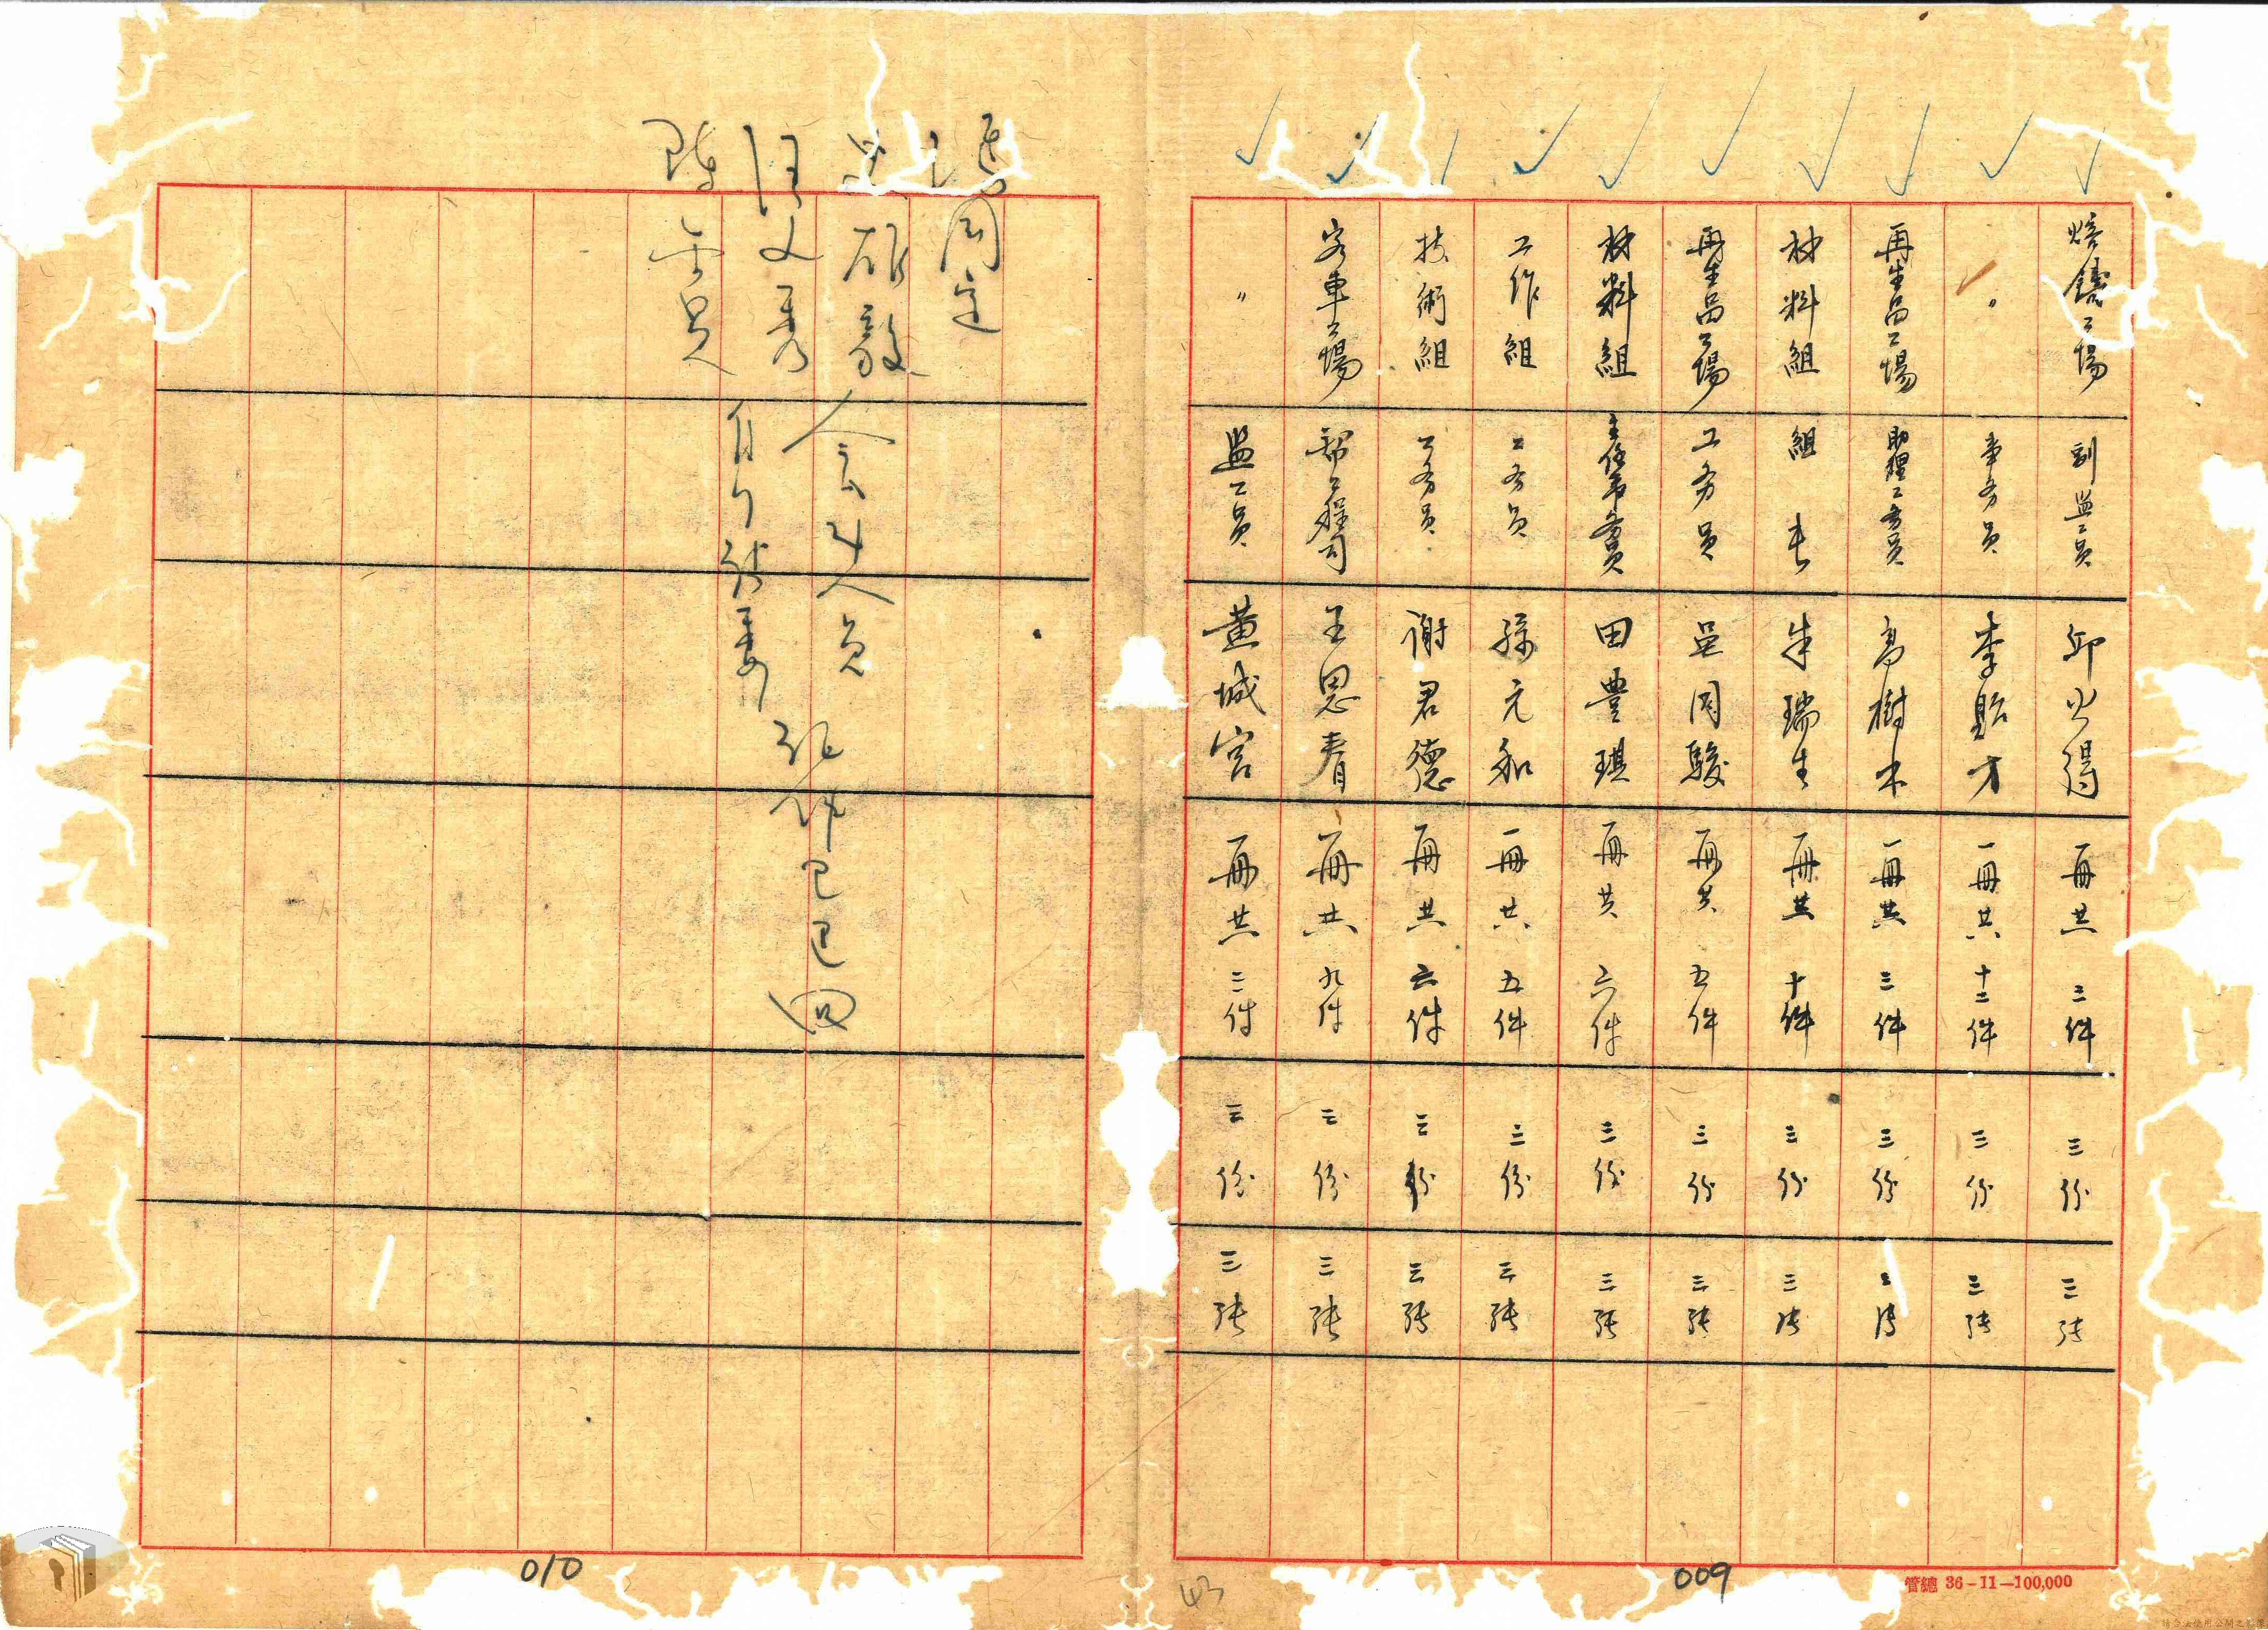 熔鑄工場 副監工員 邱火得 一冊共三件 三份 三张
〃 事务員 李貽才 一冊共十二件 三份 三张
再生品工場 助理工务員 高樹木 一冊共三件 三份 三张
材料組 組長 朱瑞生 一冊共十件 三份 三张
再生品工場 工务員 吳同駿 一冊共五件 三份 三张
材料組 主任事务員 田豊琪 一冊共六件 三份 三张
工作組 工务員 孫元和 一冊共五件 三份 三张
技術組 工务員 謝君德 一冊共六件 三份 三张
客車工場 帮工程司 王思春 一冊共九件 三份 三张
〃 監工員 黃城宮 一冊共三件 三份 三张
管總 36-11-100,000
009
43
會計人員
証件已退回
010